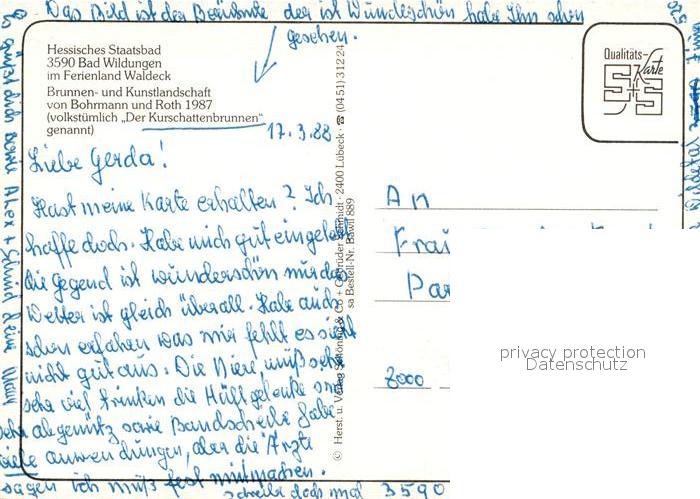 Das Bild ist der Berühmte der ist Wunderschön habe Ihn schon
gesehen.
Hessisches Staatsbad
3590 Bad Wildungen
im Ferienland Waldeck
Brunnen- und Kunstlandschaft
von Bohrmann und Roth 1987
(volkstümlich „Der Kurschattenbrunnen"
genannt)
17.3.88
Liebe Gerda!
Hast meine Karte erhalten? Ich
hoffe doch. Habe mich gut eingelebt
die Gegend ist wunderschön nur das
Wetter ist gleich überall. Habe auch
schon erfahren was mir fehlt es sieht
nicht gut aus. Die Niere, muß sehr
sehr viel trinken die Hüftgelenke sind
sehr abgenütz sowie Bandscheibe habe
viele anwendungen, aber die Ärzte
sagen ich muß fest mitmachen.
schreib doch mal 3590
Es grüßt dich sowie Alex +
© Herst. u. Verlag Schöning & Co + Gebrüder Schmidt · 2400 Lübeck · ☎ (0451) 31224
sa Bestell-Nr. Bawil 889
Qualitäts-
Karte
S+S
An
Frau
8000
privacy protection
Datenschutz